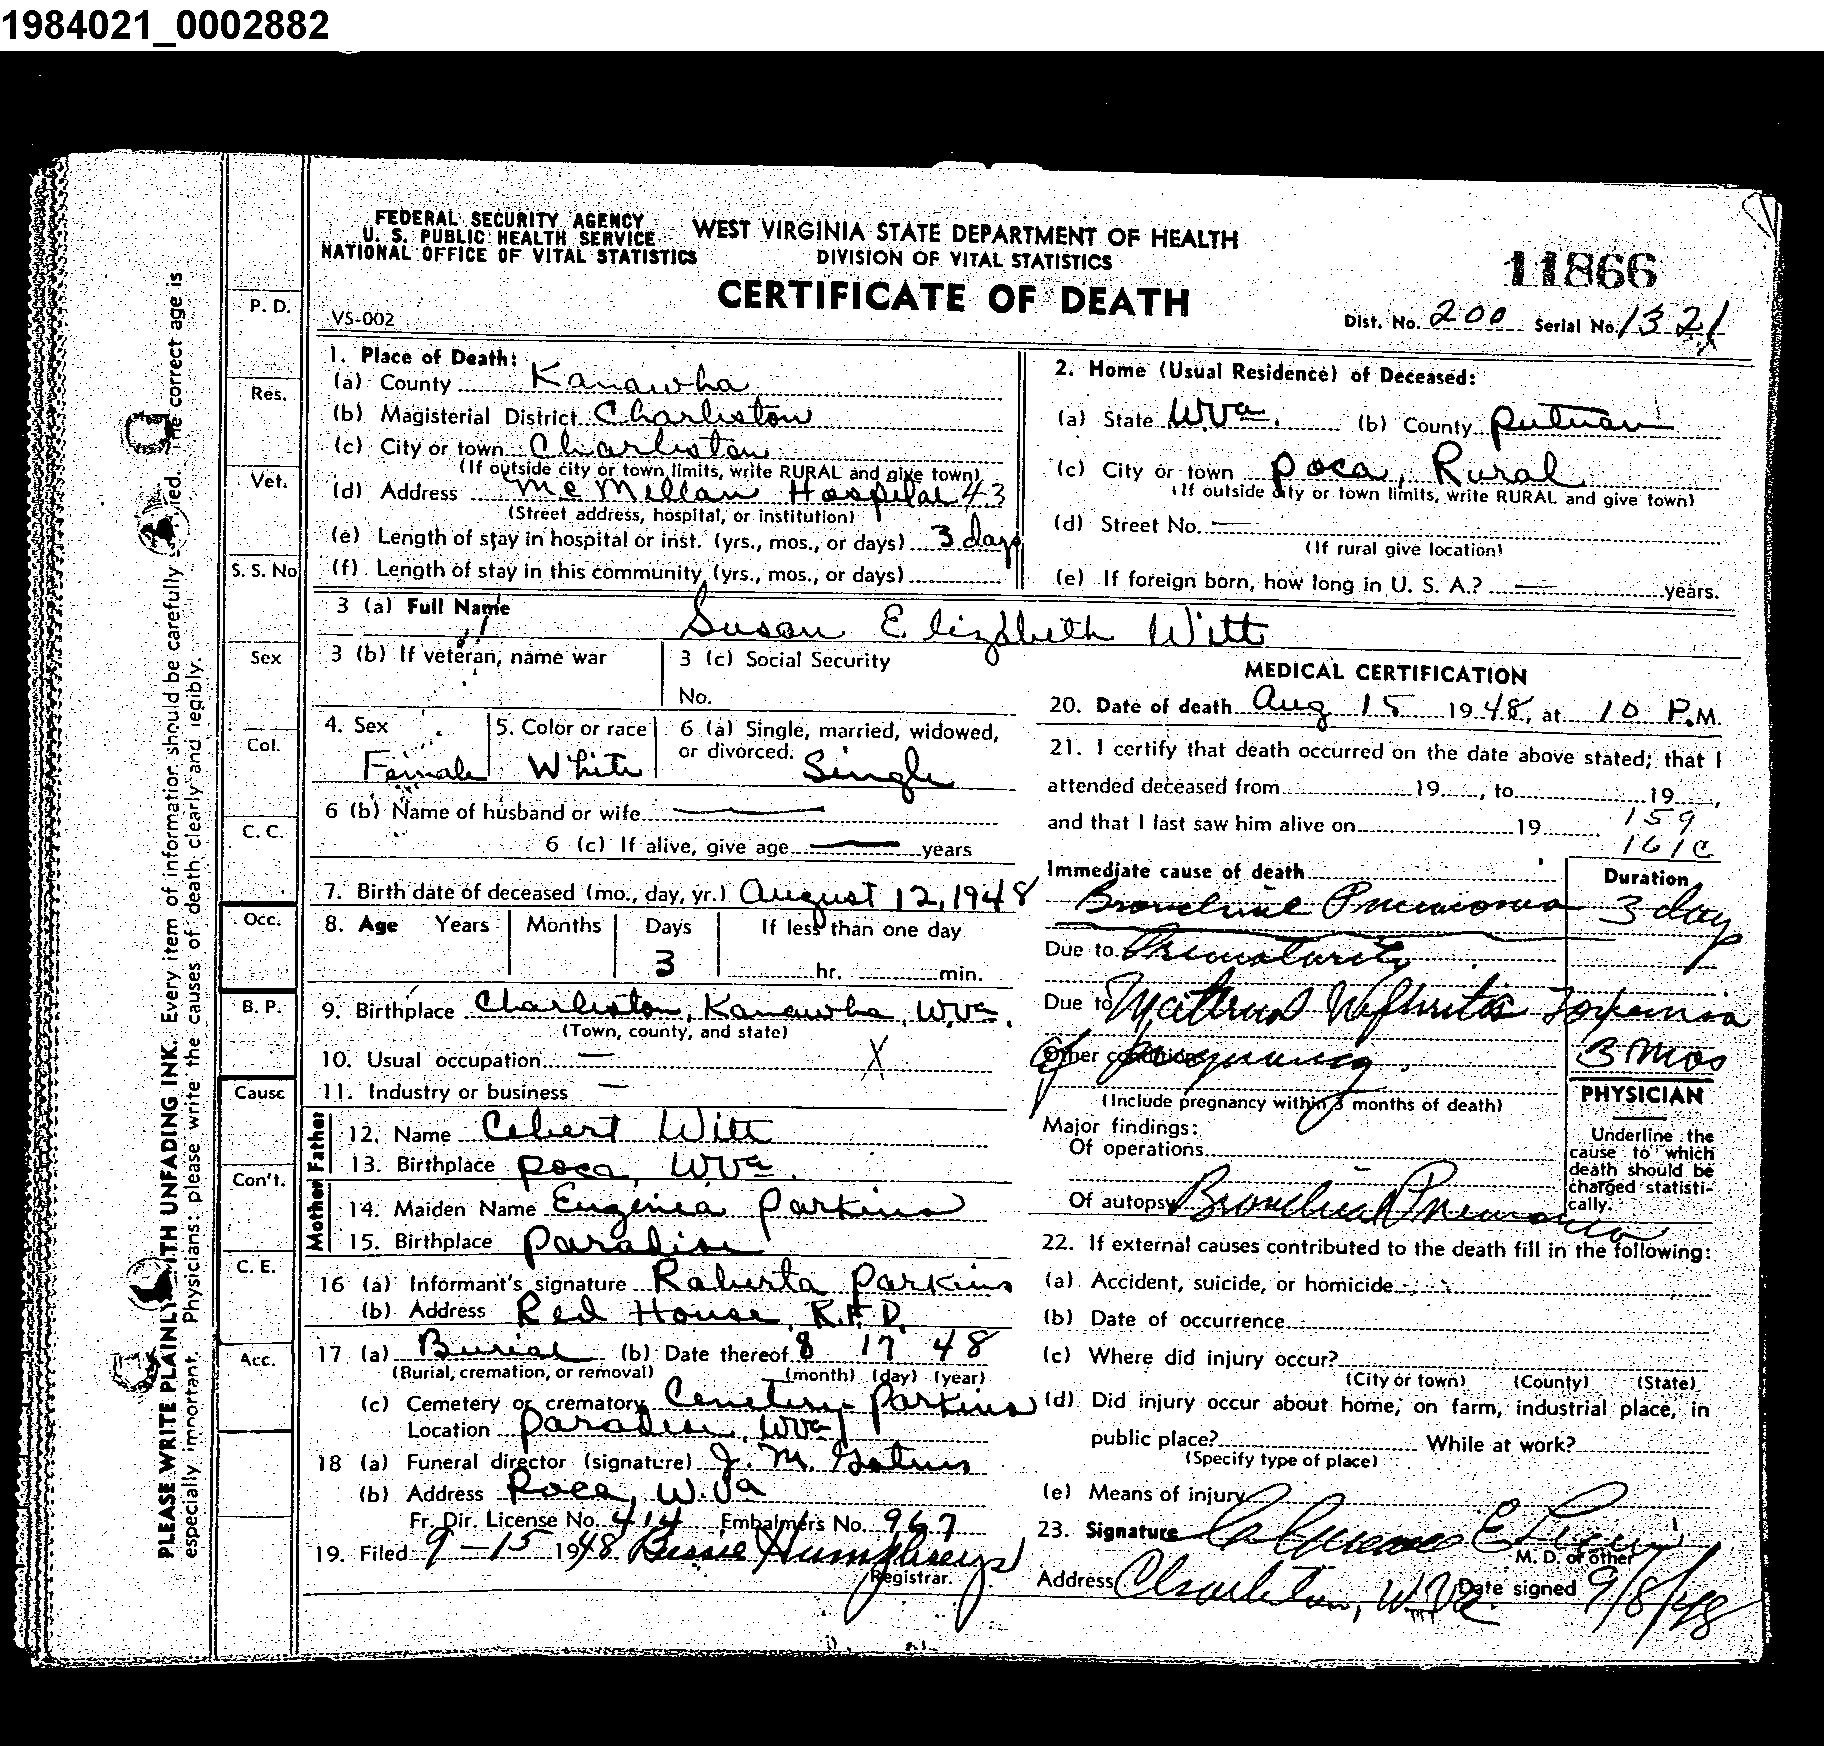 1984021_0002882
FEDERAL SECURITY AGENCY
U. S. PUBLIC HEALTH SERVICE
NATIONAL OFFICE OF VITAL STATISTICS
WEST VIRGINIA STATE DEPARTMENT OF HEALTH
DIVISION OF VITAL STATISTICS
CERTIFICATE OF DEATH
11866
VS-002
Dist. No. 200 Serial No. 1321
PLEASE WRITE PLAINLY WITH UNFADING INK. Every item of information should be carefully The correct age is
especially important. Physicians: please write the causes of death clearly and legibly.
P. D.
Res.
Vet.
S. S. No
Sex
Col.
C. C.
Occ.
B. P.
Cause
Con't.
C. E.
Acc.
1. Place of Death:
(a) County Kanawha
(b) Magisterial District Charleston
(c) City or town Charleston
(If outside city or town limits, write RURAL and give town)
(d) Address McMillan Hospital 43
(Street address, hospital, or institution)
(e) Length of stay in hospital or inst. (yrs., mos., or days) 3 days
(f) Length of stay in this community (yrs., mos., or days)
2. Home (Usual Residence) of Deceased:
(a) State W.Va. (b) County Putnam
(c) City or town Poca, Rural
(If outside city or town limits, write RURAL and give town)
(d) Street No. —
(If rural give location)
(e) If foreign born, how long in U. S. A.? — years.
3 (a) Full Name Susan Elizabeth Witt
3 (b) If veteran, name war
3 (c) Social Security
No.
4. Sex Female
5. Color or race White
6 (a) Single, married, widowed,
or divorced. Single
6 (b) Name of husband or wife —
6 (c) If alive, give age — years
7. Birth date of deceased (mo., day, yr.) August 12, 1948
8. Age Years Months Days If less than one day
3 hr. min.
9. Birthplace Charleston, Kanawha, W.Va.
(Town, county, and state)
10. Usual occupation — X
11. Industry or business —
Father
12. Name Cebert Witt
13. Birthplace Poca, W.Va.
Mother
14. Maiden Name Eugenia Parkins
15. Birthplace Paradise
16 (a) Informant's signature Roberta Parkins
(b) Address Red House, R.F.D.
17 (a) Burial (b) Date thereof 8 17 48
(Burial, cremation, or removal) (month) (day) (year)
(c) Cemetery or crematory Cemetery Parkins
Location Paradise, W.Va
18 (a) Funeral director (signature) J. M.
(b) Address Poca, W.Va
Fr. Dir. License No. 414 Embalmer's No. 967
19. Filed 9-15 1948 Bessie Humphreys
Registrar.
MEDICAL CERTIFICATION
20. Date of death Aug 15 1948, at 10 P.M.
21. I certify that death occurred on the date above stated; that I
attended deceased from 19 , to 19 ,
and that I last saw him alive on 19
159
161c
Immediate cause of death
Duration
Bronchial Pneumonia 3 day
Due to Prematurity
Due to Maternal Nephritis Toxemia
Other conditions of pregnancy. 3 mos
(Include pregnancy within 3 months of death)
PHYSICIAN
Underline the
cause to which
death should be
charged statisti-
cally.
Major findings:
Of operations
Of autopsy Bronchial Pneumonia
22. If external causes contributed to the death fill in the following:
(a) Accident, suicide, or homicide
(b) Date of occurrence
(c) Where did injury occur?
(City or town) (County) (State)
(d) Did injury occur about home, on farm, industrial place, in
public place? While at work?
(Specify type of place)
(e) Means of injury
23. Signature
M. D. or other
Address Charleston, W.Va. Date signed 9/8/48